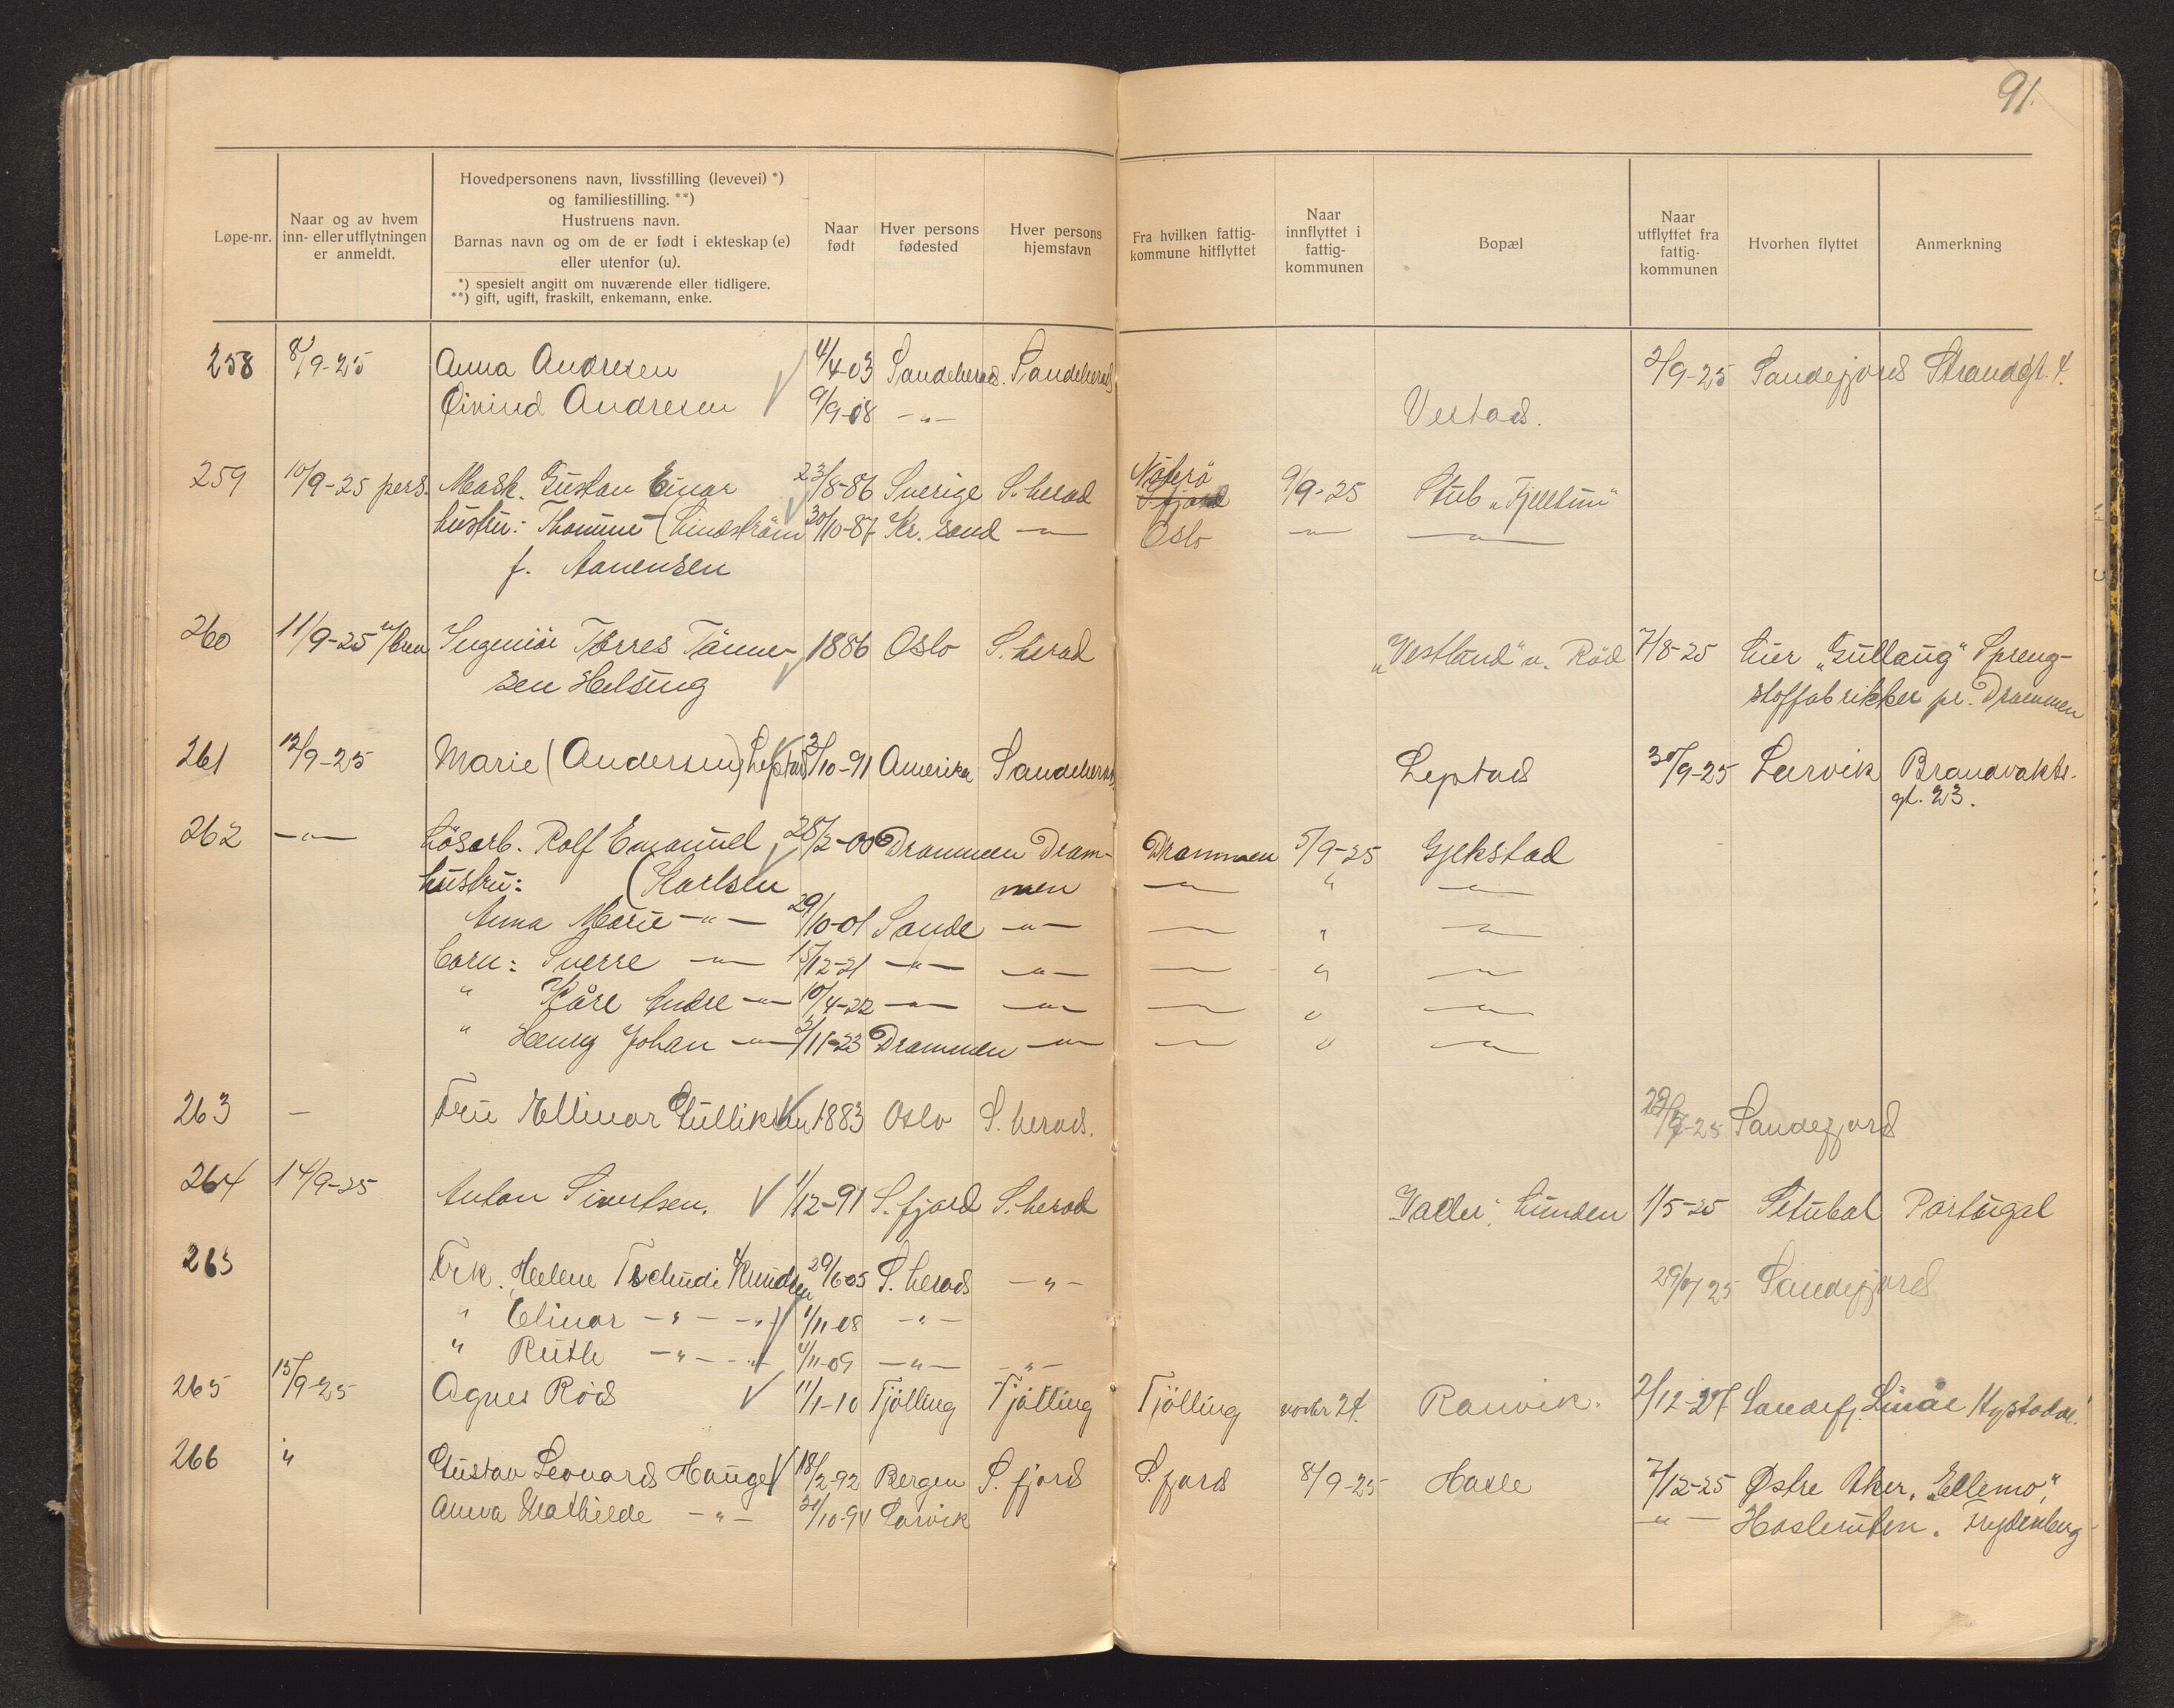 91.
Løpe-nr.
Naar og av hvem
inn- eller utflytningen
er anmeldt.
Hovedpersonens navn, livsstilling (levevei) *)
og familiestilling. **)
Hustruens navn.
Barnas navn og om de er født i ekteskap (e)
eller utenfor (u).
*) spesielt angitt om nuværende eller tidligere.
**) gift, ugift, fraskilt, enkemann, enke.
Naar
født
Hver persons
fødested
Hver persons
hjemstavn
Fra hvilken fattig-
kommune hitflyttet
Naar
innflyttet i
fattig-
kommunen
Bopæl
Naar
utflyttet fra
fattig-
kommunen
Hvorhen flyttet
Anmerkning
258 8/9-25 Anna Andresen 4/4-03 Sandeherad. Sandeherad 2/9-25 Sandefjord Strandgt. 4.
Øivind Andresen 9/9-08 -"- Vestad.
259 10/9-25 pers. Mask. Gustav Einar 23/8-86 Sverige S. herad Nøterø S. fjord 9/9-25 Stub „Fjelltun"
hustru: Thomine (Lindström 30/10-87 Kr. sand -"- Oslo -"- -"-
f. Aanensen
260 11/9-25 Ingeniör Tørres Tönne- 1886 Oslo S. herad „Vestlund" v. Röd 7/8-25 Lier „Gullaug" Spreng-
sen Helsing stoffabrikker pr. Drammen
261 12/9-25 Marie (Andersen) Leptad 3/10-91 Amerika Sandeherad Leptad 30/9-25 Larvik Brandvakts-
gt. 23.
262 -"- Lösarb. Rolf Emanuel 28/2-00 Drammen Dram- Drammen 5/9-25 Gjekstad
hustru: (Karlsen men -"- " -"-
Anna Marie -"- 29/10-01 Sande -"- -"- " -"-
barn: Sverre -"- 15/12-21 -"- -"- -"- " -"-
" Kåre Andre -"- 10/4-22 -"- -"- -"- " -"-
" Henry Johan -"- 3/11-23 Drammen -"- -"- " -"-
263 - Fru Ellinor Gulliksen 1883 Oslo S. herad. Sandefjord
264 14/9-25 Anton Sivertsen. 1/12-91 S. fjord S. herad Lunden 1/5-25 Setubal Portugal
265 Frk. Helene Tschudi Knudsen 29/6-05 S. herad -"- Sandefjord
" Elinor -"- -"- 1/11-08 -"-
" Ruth -"- -"- 4/11-09 -"- -"-
265 15/9-25 Agnes Röd 11/1-10 Tjölling Tjölling Tjölling novbr 24. Ranvik. 2/12-27 Sandefj.
266 " Gustav Leonard Hauge 18/2-92 Bergen S. fjord S. fjord 8/9-25 Hasle 7/12-25 Østre Aker, „Ellemo",
Anna Mathilde -"- 30/10-94 Larvik -"- Hasleveien. Frydenberg